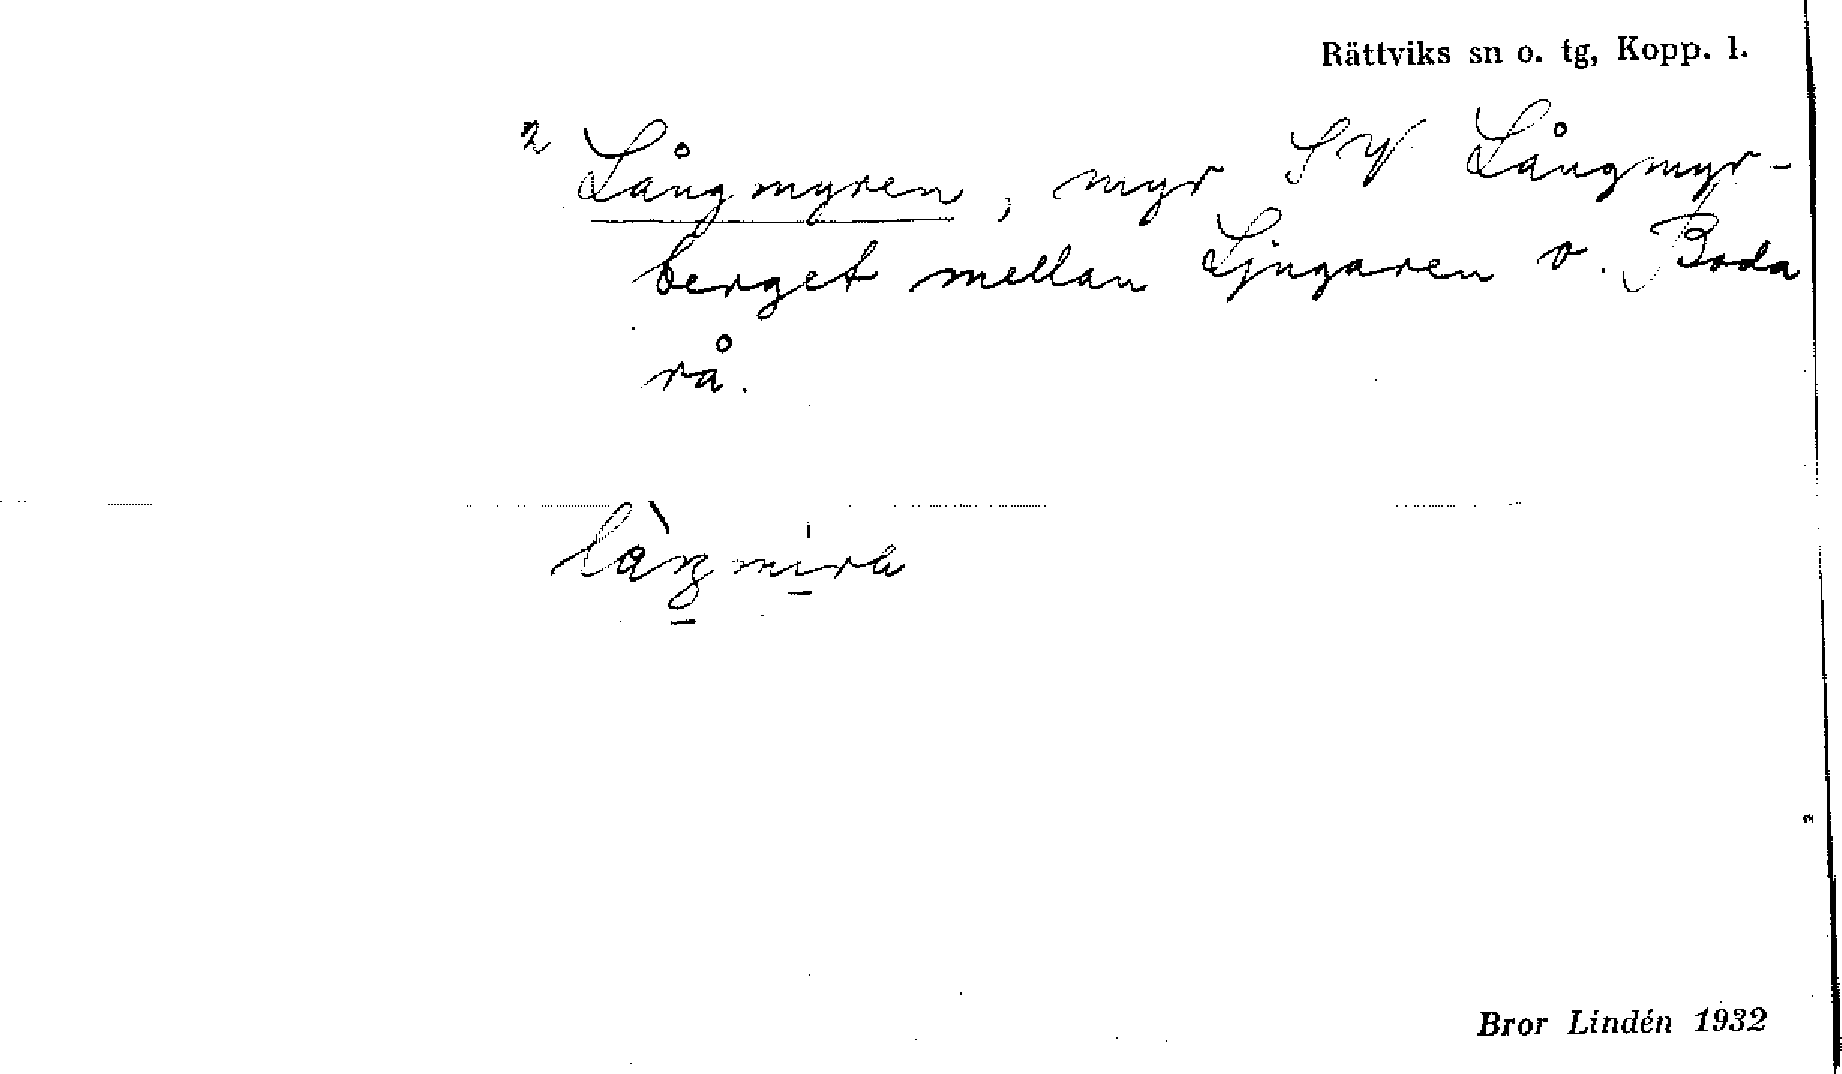 Rättviks sn o. tg, Kopp. l.
2 Långmyren, myr SV Långmyr-
berget mellan Ljugaren o. Boda
rå.
Bror Lindén 1932